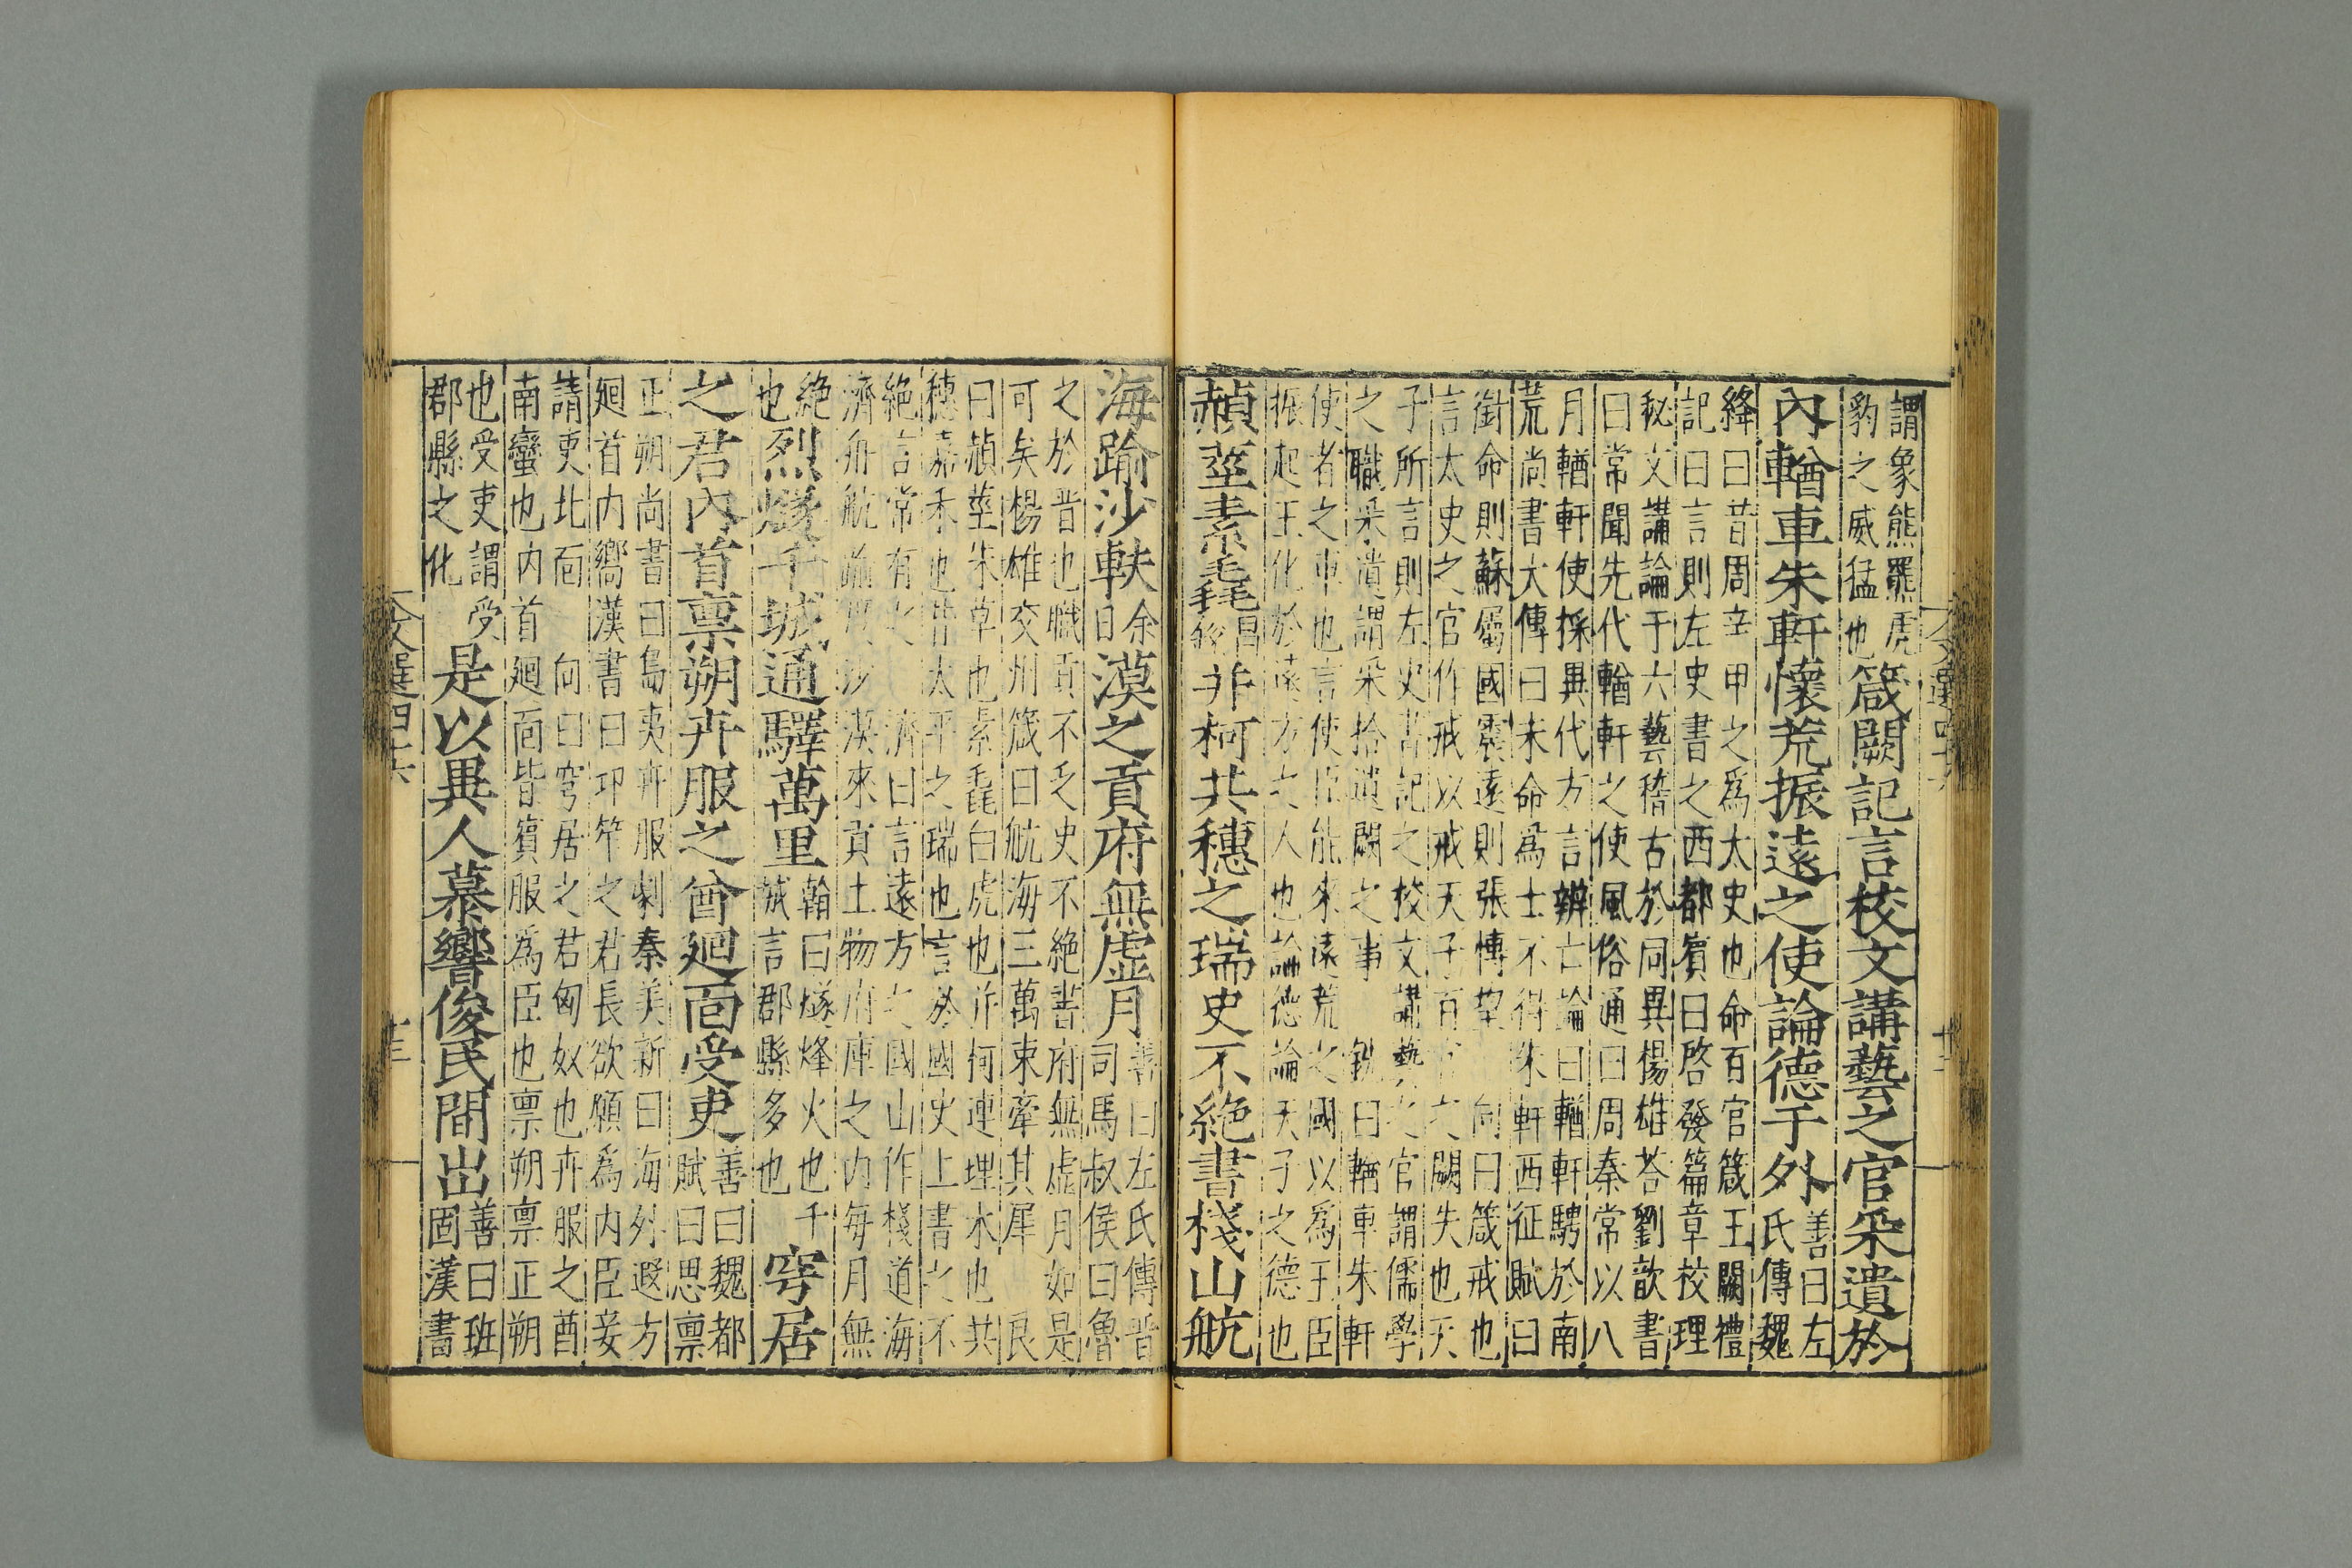 謂象熊羆虎
豹之威猛也
箴闕記言校文講藝之官采遺於
內輶車朱軒懷荒振遠之使論德于外
善曰左
氏傳魏
絳曰昔周辛甲之為太史也命百官箴王闕禮
記曰言則左史書之西都賔曰啓發篇章校理
秘文講論于六藝稽古於同異楊雄荅劉歆書
曰常聞先代輶軒之使風俗通曰周秦常以八
月輶軒使採異代方言辨亡論曰輶軒騁於南
荒尚書大傳曰未命為士不得朱軒西征賦曰
銜命則蘇屬國震遠則張博望 向曰箴戒也
言太史之官作戒以戒天子百官之闕失也天
子所言則左史書記之校文講藝之官謂儒學
之職采遺謂采拾遺闕之事 銑曰輶車朱軒
使者之車也言使臣能來遠荒之國以為王臣
振起王化於遠方之人也論德論天子之德也
赬莖素毳
昌
銳
并柯共穗之瑞史不絕書棧山航
海踰沙軼
余
日
漠之貢府無虛月
善曰左氏傳晉
司馬叔侯曰魯
之於晉也職貢不乏史不絕書府無虛月如是
可矣楊雄交州箴曰航海三萬束牽其犀 良
曰赬莖朱草也素毳白虎也并柯連理木也共
穗嘉禾也皆太平之瑞也言於國史上書之不
絕言常有之 濟曰言遠方之國山作棧道海
濟舟航踰度沙漠來貢土物府庫之內每月無
絕
也
烈燧千城通驛萬里
翰曰燧烽火也千
城言郡縣多也
穹居
之君內首稟朔卉服之酋廻面受吏
善曰魏都
賦曰思稟
正朔尚書曰島夷卉服劇秦美新曰海外遐方
廻首內嚮漢書曰邛笮之君長欲願為內臣妾
請吏北面 向曰穹居之君匈奴也卉服之酋
南蠻也內首廻面皆賔服為臣也稟朔稟正朔
也受吏謂受
郡縣之化
是以異人慕響俊民間出
善曰班
固漢書
文選四十六
十三